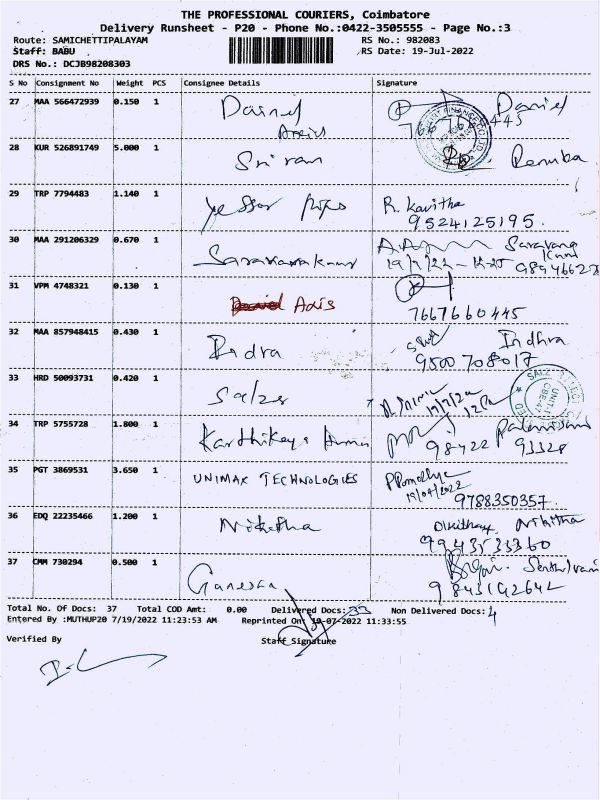 THE PROFESSIONAL COURIERS, Coimbatore
Delivery Runsheet - P20 - Phone No.:0422-3505555 - Page No.:3
Route: SAMICHETTIPALAYAM RS No.: 982083
Staff: BABU RS Date: 19-Jul-2022
DRS No.: DCJB98208303
S No Consignment No Weight PCS Consignee Details Signature
27 MAA 566472939 0.150 1 Daniel Daniel
Axis
28 KUR 526891749 5.000 1 Sri ram Renuka
29 TRP 7794483 1.140 1 R. Kavitha
9524125195.
30 MAA 291206329 0.670 1 Saravanakumar Saravana
Kumar
19/7/22
31 VPM 4748321 0.130 1 Axis
7667660445
32 MAA 857948415 0.430 1 Indra Indhra
9500708017
33 HRD 50093731 0.420 1 Salzer
19/7/22
34 TRP 5755728 1.800 1 Karthikeya
98422 93328
35 PGT 3869531 3.650 1 UNIMAX TECHNOLOGIES
19/07/2022
9788350357
36 EDQ 22235466 1.200 1 Niketha Nikitha
9943533360
37 CMM 730294 0.500 1 Ganesha
Total No. Of Docs: 37 Total COD Amt: 0.00 Delivered Docs: 33 Non Delivered Docs: 4
Entered By :MUTHUP20 7/19/2022 11:23:53 AM Reprinted On: 19-07-2022 11:33:55
Verified By Staff Signature